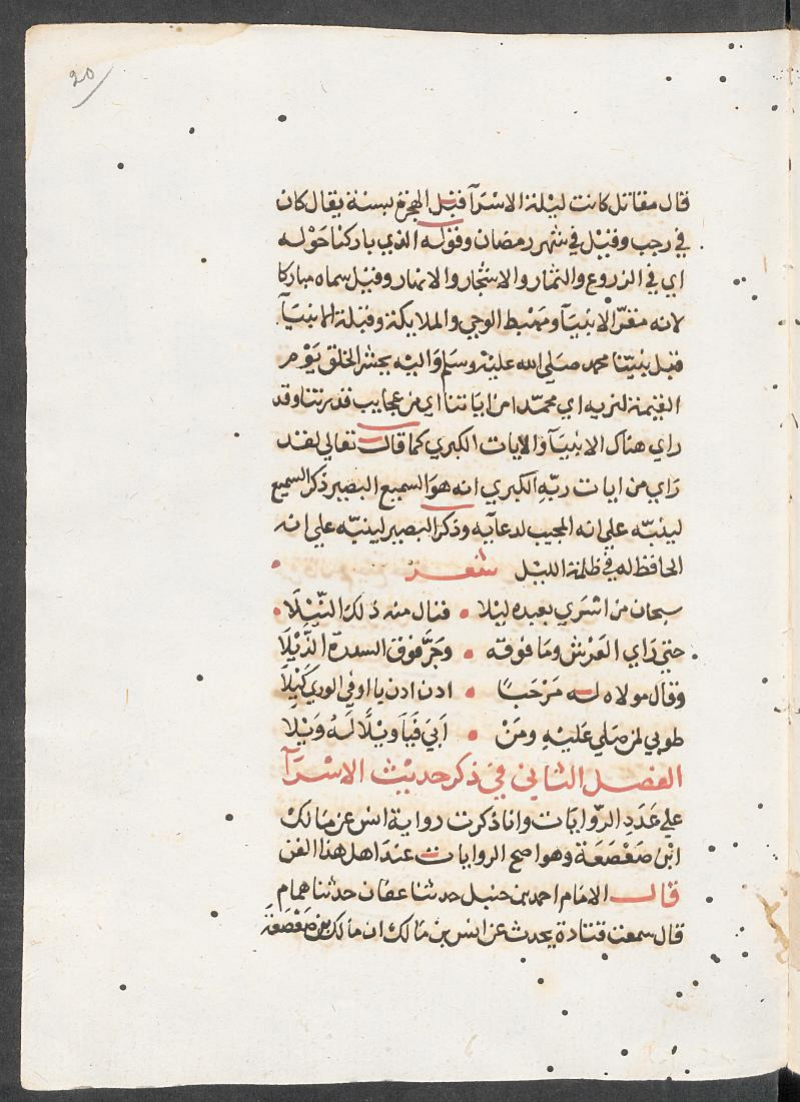 20
قال مقاتل كانت ليلة الاسرآ قبل الهجرة بسنة يقال كان
في رجب وقيل في شهر رمضان وقوله الذي باركنا حوله
اي في الزروع والثمار والاشجار والانهار وقيل سماه مباركا
لانه مقرّ الانبيآ ومهبط الوحي والملايكة وقبلة الانبيآ
قبل نبيّنا محمد صلي الله عليه وسلم واليه يحشر الخلق يوم
القيمة لنريه اي محمّدا من اياتنا اي من عجايب قدرتنا وقد
راي هناك الانبيآ والايات الكبري كما قال تعالي لقد
رَاي من ايات ربّهِ الكبري انه هوَ السميع البصير ذكر السميع
لينبّه علي انه المجيب لدعآيه وذكر البصير لينبّه علي انه
الحافظ له في ظلمة الليل شعر
سبحان من اسْرَي بعبده ليلا • فنال منه ذلك النَّيْلَا •
حتي رَاي العَرْش ومَا فوقه • وجَرَّ فوق السدرة الذَّيْلَا
وقال مولاه له مَرْحَبًا • ادن ادن يا اوفي الوري كَيْلَا
طوبي لمن صَلي عَليْهِ ومَنْ • اَبَي فَيَا ويْلًا لَهُ وَيْلَا
الفصل الثاني في ذكر حديث الاسْرَآ
علي عَدَدِ الروَّايَات وانا ذكرت رواية انس عن مَالك
ابْن صَعْصَعَة وهو اصح الروايات عند اهل هذا الفن
قال الامَام احمد بن حنبل حدثنا عفان حدثنا همام
قال سمعت قتادة يحدث عن انس بن مَالك ان مَالك بن صَعْصَعَة